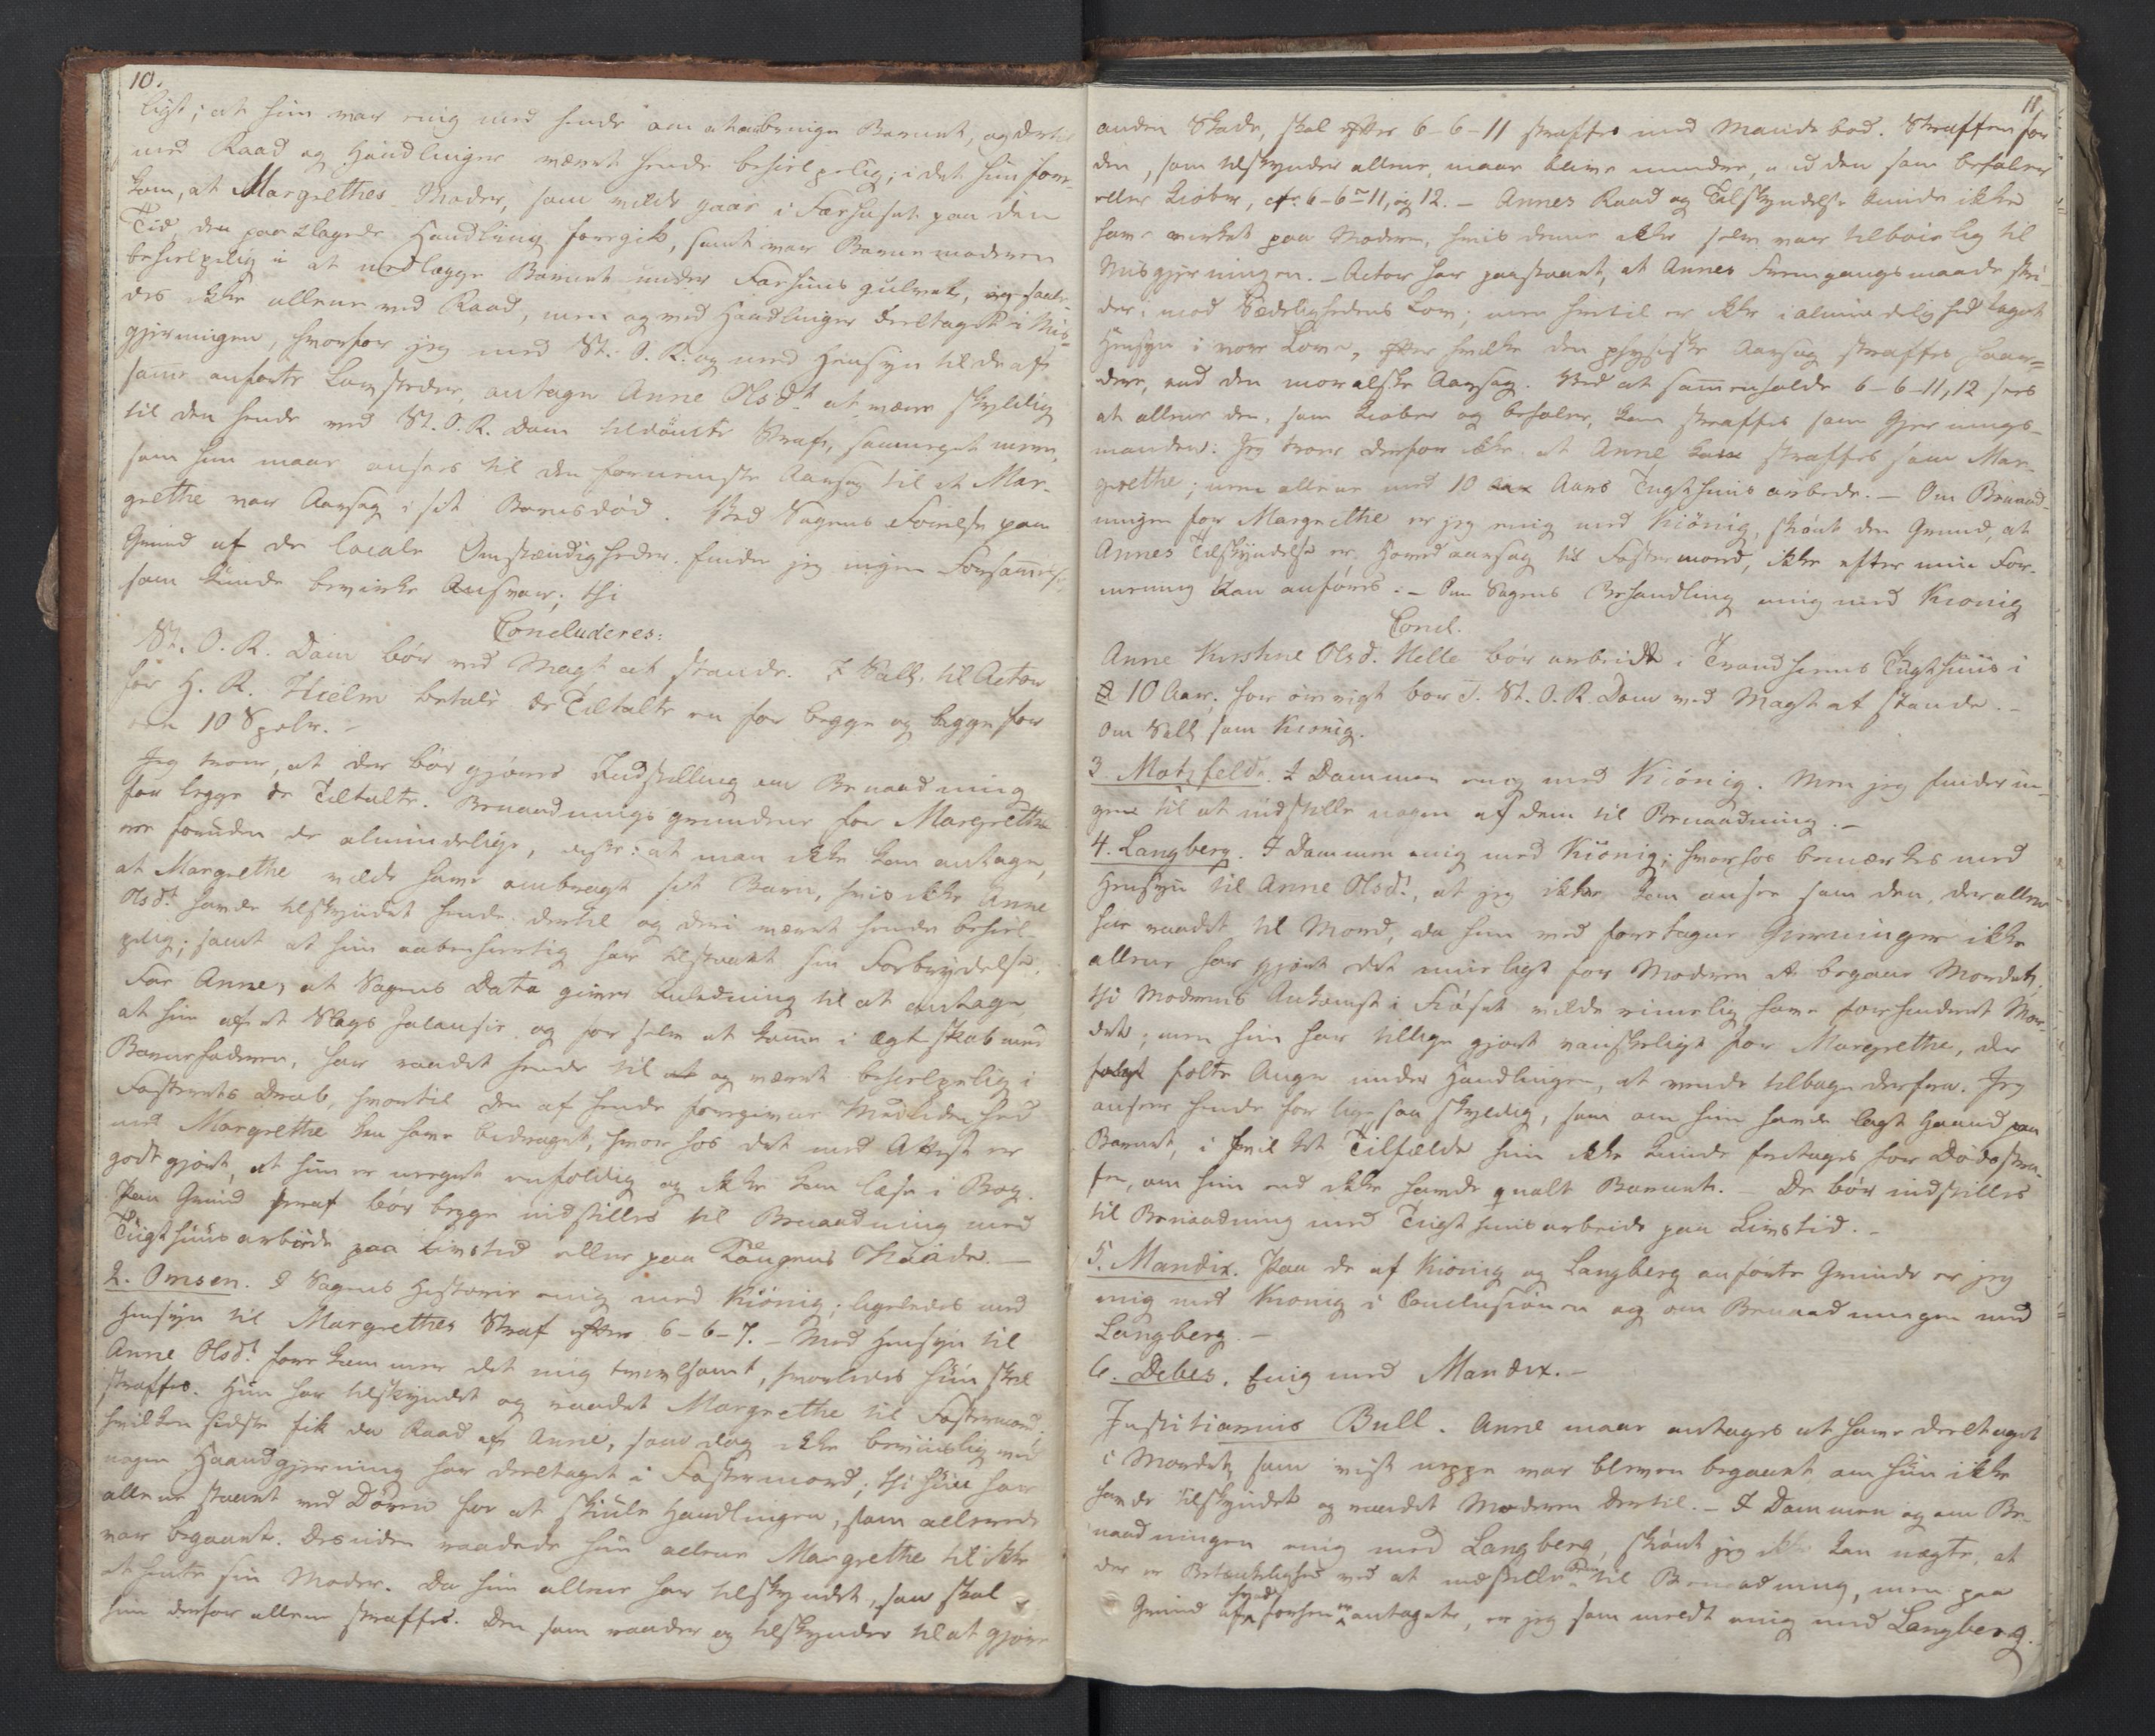 10.
ligt; at hun var enig med hende om at ombringe Barnet, og dertil
med Raad og Handlinger været hende behielpelig; i det hun fore¬
kom, at Margrethes Moder, som vilde gaae i Færhuset paa den
Tid den paaklagede Handling foregik, samt var Barnemoderen
behielpelig i at nedlægge Barnet under Færhuus gulvet, og saale¬
des ikke allene med Raad, men og med Handlinger deeltaget i Mis¬
gjerningen, hvorfor jeg med St. O. R. og med Hensyn til de af
samme anførte Lovsteder, antager Anne Olsdt. at være skyldig
til den hende ved St. O. R. Dom tildømte Straf, saameget mere,
som hun maae ansees til den fornemste Aarsag til at Mar¬
grethe var Aarsag i sit Barnsdød. Ved Sagens Førelse paa
Grund af de locale Omstændigheder finder jeg ingen Forsømmelse,
som kunde bevirke Ansvar; thi
Concluderes:
St. O. R. Dom bør ved Magt at stande. I Sall. til Actor
for H. R. Hielm betale de Tiltalte en for begge og begge for
een 10 Spdlr. –
Jeg troer, at der bør gjøres Indstilling om Benaadning
for begge de Tiltalte. Benaadningsgrundene for Margrethe
ere foruden de almindelige, disse: at man ikke kan antage,
at Margrethe vilde have ombragt sit Barn, hvis ikke Anne
Olsdt. havde tilskyndet hende dertil og deri været hende behiel¬
pelig; samt at hun aabenhiertig har tilstaaet sin Forbrydelse.
For Anne, at Sagens Data giver Anledning til at antage,
at hun af et Slags Jalousie og for selv at komme i Ægteskab med
Barnefaderen, har raadet hende til at og været behielpelig i
Fosterets Drab, hvortil den af hende foregivne Medlidenhed
med Margrethe kan have bidraget, hvorhos det med Attest er
godtgjort, at hun er meget enfoldig og ikke kan læse i Bog.
Paa Grund heraf bør begge indstilles til Benaadning med
Tugthuusarbeide paa Livstid eller paa Kongens Naade. –
2. Omsen. I Sagens Historie enig med Kiønig; ligeledes med
Hensyn til Margrethes Straf efter 6-6-7. – Med Hensyn til
Anne Olsdt. forekommer det mig tvivlsomt, hvorledes hun skal
straffes. Hun har tilskyndet og raadet Margrethe til Fostermord,
hvilken sidste fik da Raad af Anne, som dog ikke beviislig ved
nogen Haandgjerning har deeltaget i Fostermord; thi hun har
allene staaet ved Døren for at skiule Handlingen, som allerede
var begaaet. Desuden raadede hun allene Margrethe til ikke
at hente sin Moder. Da hun allene har tilskyndet, saa skal
hun derfor allene straffes. Den som raader og tilskynder til at gjøre
11.
anden Skade, skal efter 6-6-11 straffes med Mandebod. Straffen for
den, som tilskynder allene, maae blive mindre, end den som befaler
eller kiøber, cfr. 6-6-11, og 12. – Annes Raad og Tilskyndelse kunde ikke
have virket paa Moderen, hvis denne ikke selv var tilbøielig til
Misgjerningen. – Actor har paastaaet, at Annes Fremgangsmaade stri¬
der mod Sædelighedens Lov; men hertil er ikke i almindelighed taget
Hensyn i vore Love, efter hvilke den physiske Aarsag straffes haar¬
dere, end den moralske Aarsag. Ved at sammenholde 6-6-11, 12 sees
at allene den, som kiøber og befaler, kan straffes som Gjernings¬
manden: Jeg troer derfor ikke at Anne kan straffes som Mar¬
grethe; men allene med 10 Aars Tugthuusarbeide. – Om Benaad¬
ningen for Margrethe er jeg enig med Kiønig, skiønt den Grund, at
Annes Tilskyndelse er Hovedaarsag til Fostermord, ikke efter min For¬
mening kan anføres. – Om Sagens Behandling enig med Kiønig
Concl.
Anne Kirstine Olsd. Helle bør arbeide i Trondhiems Tugthuus i
10 Aar; for øvrigt bør I. St. O. R. Dom ved Magt at stande. –
Om Sall. som Kiønig.
3. Motzfeldt. I Dommen enig med Kiönig. Men jeg finder in¬
gen til at indstille nogen af dem til Benaadning. –
4. Langberg. I Dommen enig med Kiönig; hvorhos bemærkes med
Hensyn til Anne Olsdt., at jeg ikke kan ansee som den, der allene
har raadet til Mord, da hun ved foretagne Gjerninger ikke
allene har gjort det mueligt for Moderen at begaae Mordet,
thi Moderens Ankomst i Fiøset vilde rimelig have forhindret Mor¬
det; men hun har tillige gjort vanskeligt for Margrethe, der
følte Anger under Handlingen, at vende tilbage derfra. Jeg
anseer hende for lige saa skyldig, som om hun havde lagt Haand paa
Barnet, i hvilket Tilfælde hun ikke kunde fritages for Dødsstraf¬
fen, om hun end ikke havde qvalt Barnet. – De bør indstilles
til Benaadning med Tugthuusarbeide paa Livstid. –
5. Mandix. Paa de af Kiönig og Langberg anførte Grunde er jeg
enig med Kiønig i Conclusionen og om Benaadningen med
Langberg. –
6. Debes. Enig med Mandix. –
Justitiarius Bull. Anne maae antages at have deeltaget
i Mordet, som vist neppe var bleven begaaet om hun ikke
havde tilskyndet og raadet Moderen dertil. – I Dommen og om Be¬
naadningen enig med Langberg, skiønt jeg ikke kan nægte, at
der er Betænkelighed ved at indstille Dem til Benaadning, men paa
Grund af hvad forhen er antaget, er jeg som meldt enig med Langberg.